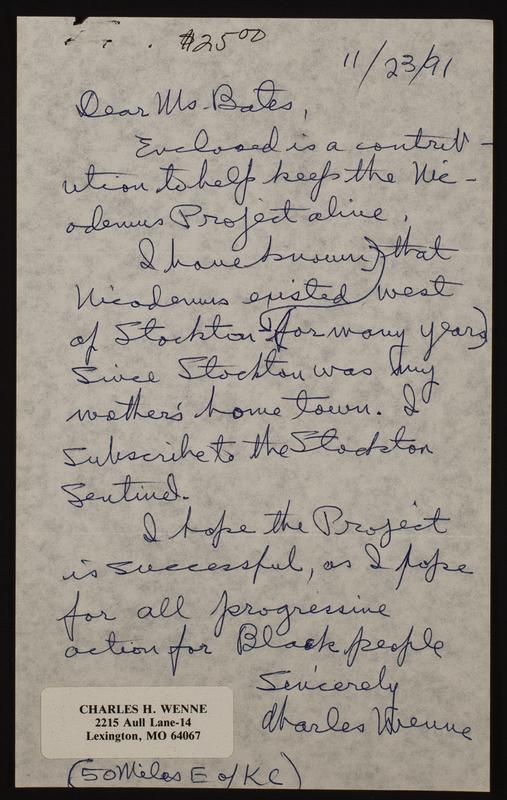 $25.00
11/23/91
Dear Ms. Bates,
Enclosed is a contrib-
ution to help keep the Nic-
odemus Project alive.
I have known) that
Nicodemus existed west
of Stockton (for many years)
since Stockton was my
mother's home town. I
subscribe to the Stockton
Sentinel.
I hope the Project
is successful, as I hope
for all progressive
action for Black people
Sincerely
Charles Wenne
CHARLES H. WENNE
2215 Aull Lane-14
Lexington, MO 64067
(50 Miles E of KC)